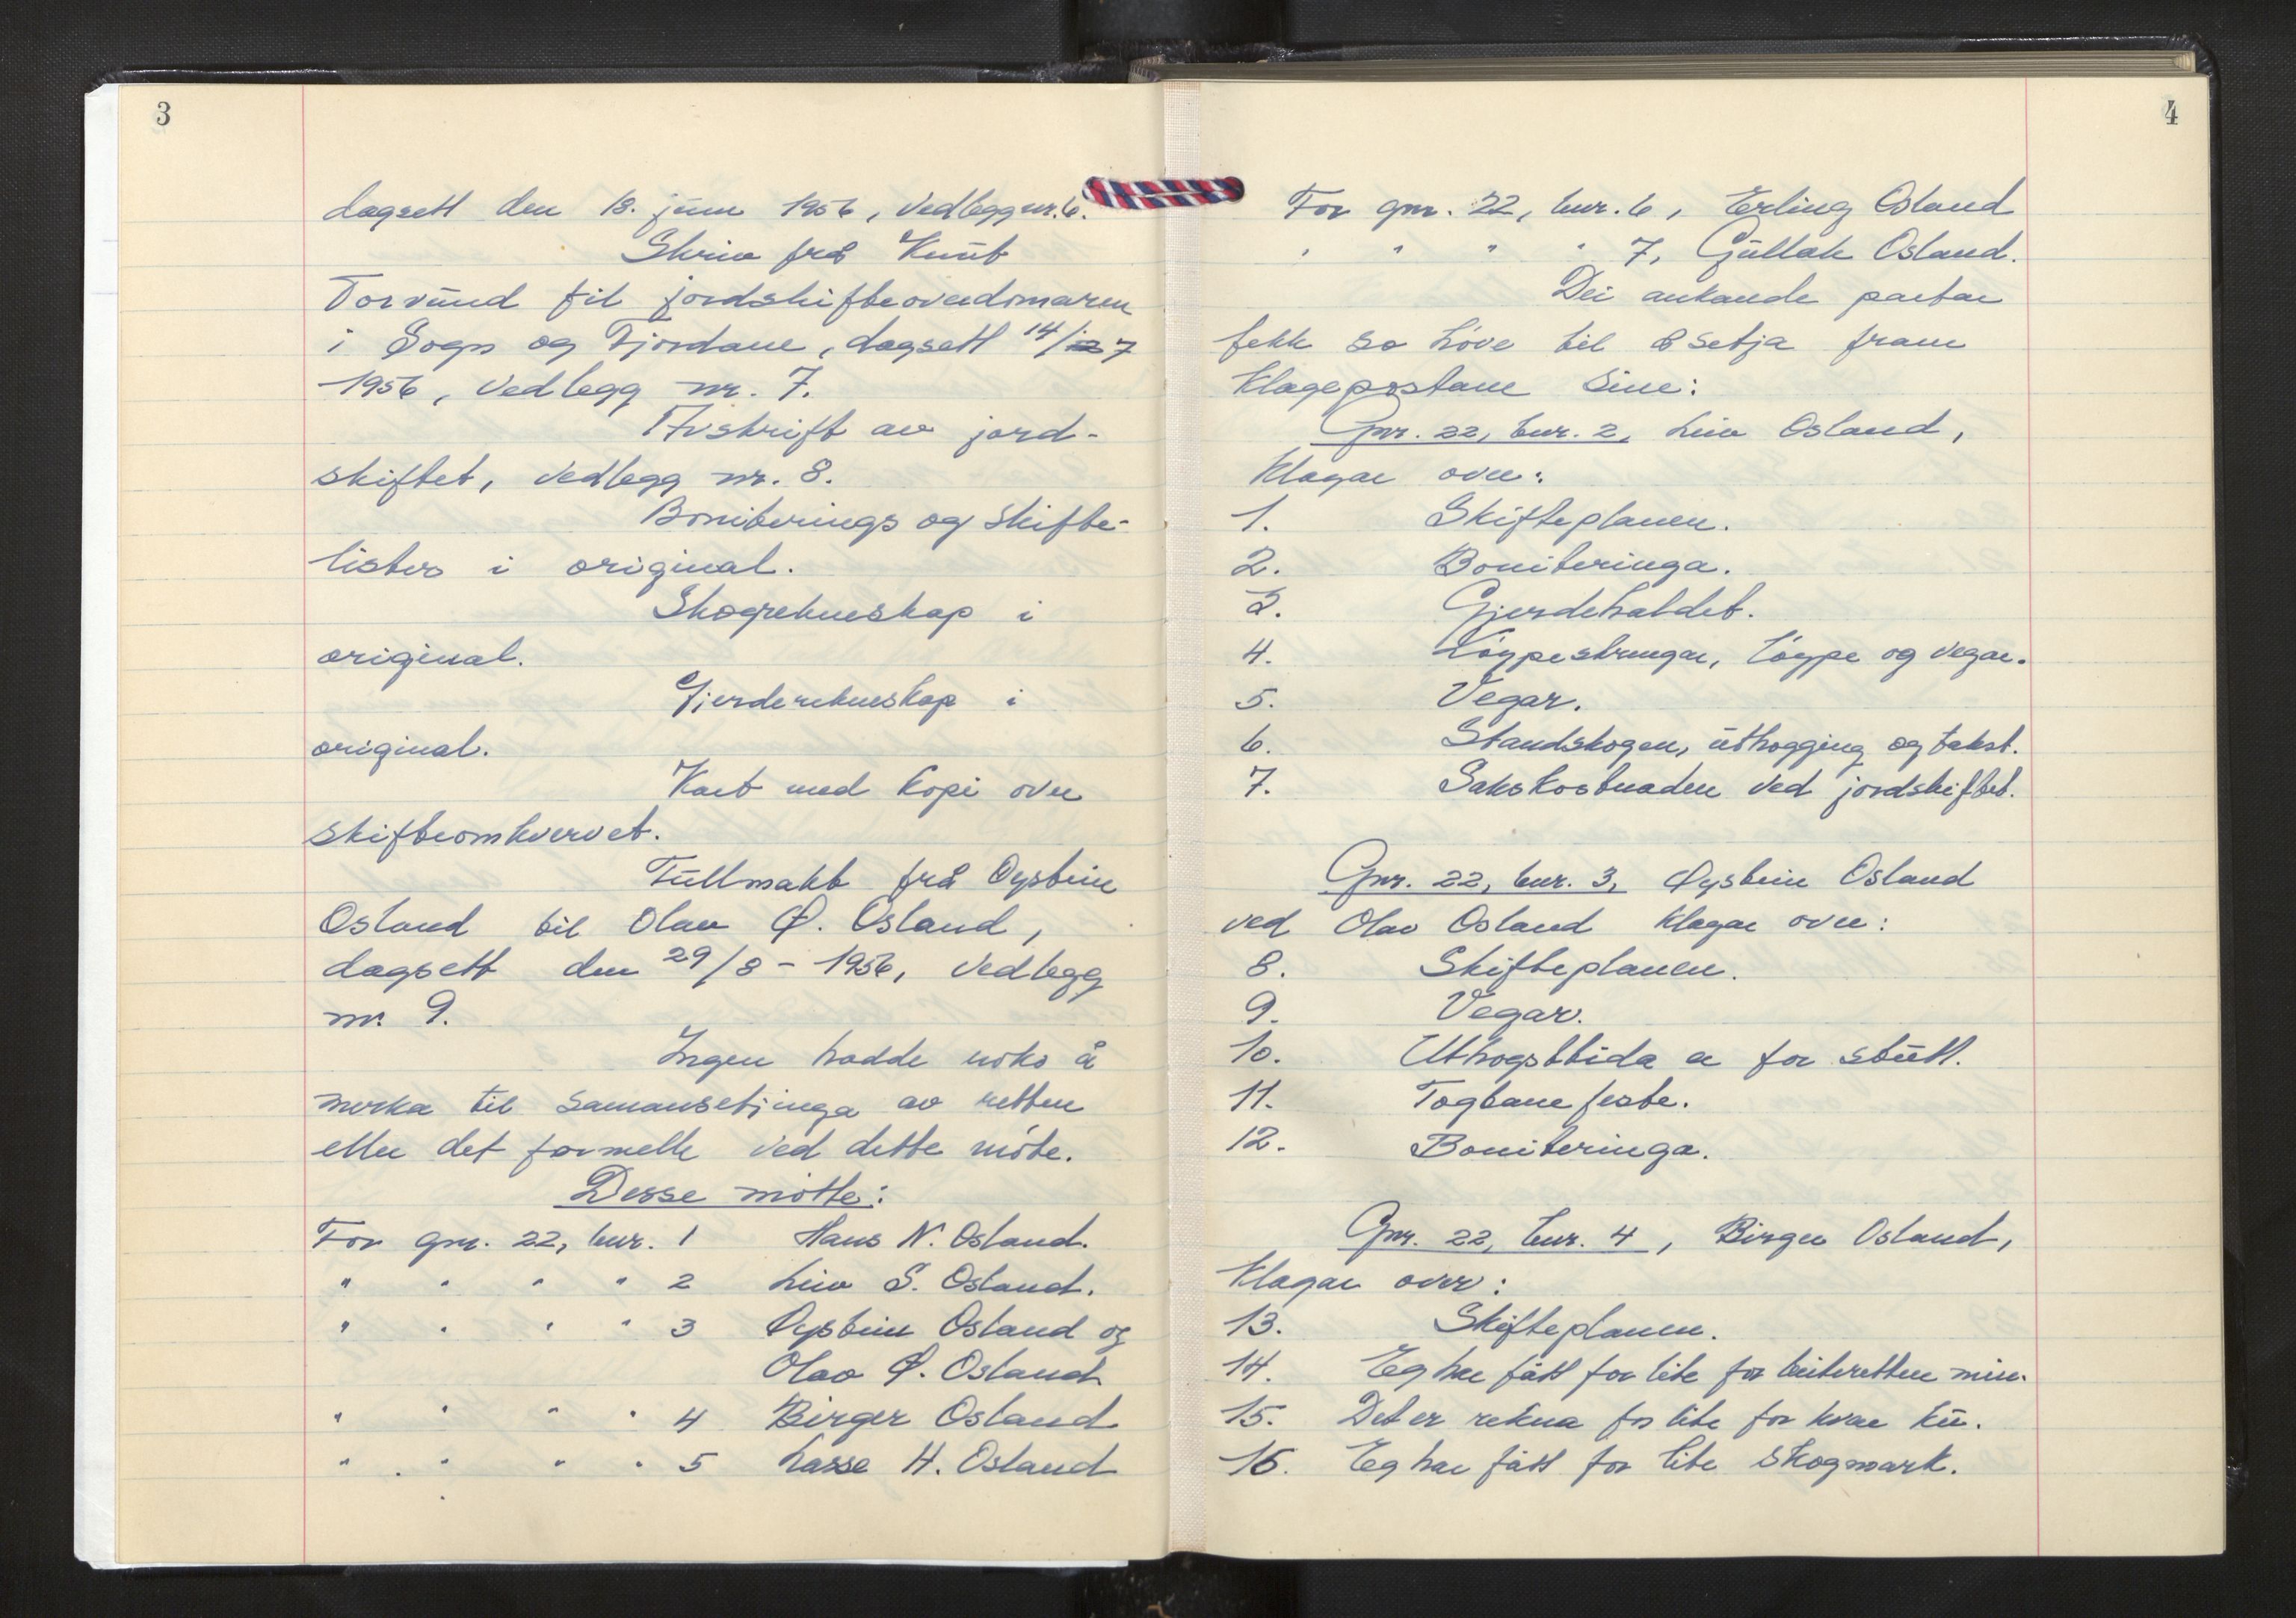 3
dagsett den 18. juni 1956, vedlegg nr. 6.
Skriv frå Knut
Torvund til jordskifteoverdomaren
i Sogn og Fjordane, dagsett 14/7
1956, vedlegg nr. 7.
Avskrift av jord-
skiftet, vedlegg nr. 8.
Boniterings og skifte-
lister i original.
Skogrekneskap i
original.
Gjerderekneskap i
original.
Kart med kopi over
skifteomkvervet.
Fullmakt frå Øystein
Osland til Olav Ø. Osland,
dagsett den 29/8 - 1956, vedlegg
nr. 9.
Ingen hadde noko å
merka til samansetjinga av retten
eller det formelle ved dette møte.
Desse møtte:
For gnr. 22, bnr. 1 Hans N. Osland.
" " " " 2 Leiv S. Osland.
" " " " 3 Øystein Osland og
Olav Ø. Osland
" " " " 4 Birger Osland
" " " " 5 Lasse H. Osland
4
For gnr. 22, bnr. 6, Erling Osland
" " " " 7, Gullak Osland.
Dei ankande partar
fekk so høve til å setja fram
klagepostane sine:
Gnr. 22, bnr. 2, Leiv Osland,
klagar over:
1. Skifteplanen.
2. Boniteringa.
3. Gjerdehaldet.
4. Løypestrengar, løype og vegar.
5. Vegar.
6. Standskogen, uthogging og takst.
7. Sakskostnaden ved jordskiftet.
Gnr. 22, bnr. 3, Øystein Osland
ved Olav Osland klagar over:
8. Skifteplanen.
9. Vegar.
10. Uthogstida er for stutt.
11. Togbanefeste.
12. Boniteringa.
Gnr. 22, bnr. 4, Birger Osland,
klagar over:
13. Skifteplanen.
14. Eg har fått for lite for beiteretten min.
15. Det er rekna for lite for kvar ku.
16. Eg har fått for lite skogmark.